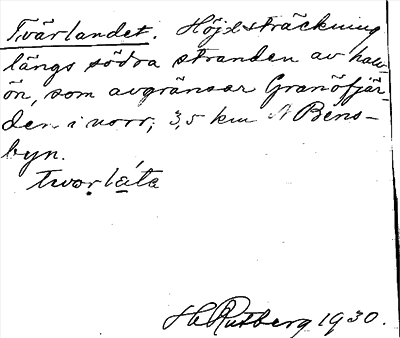 Tvärlandet. Höjdsträckning
längs södra stranden av halv-
ön, som avgränsar Granöfjär-
den i norr; 3,5 km N Bens-
byn.
tworláta
H Rutberg 1930.